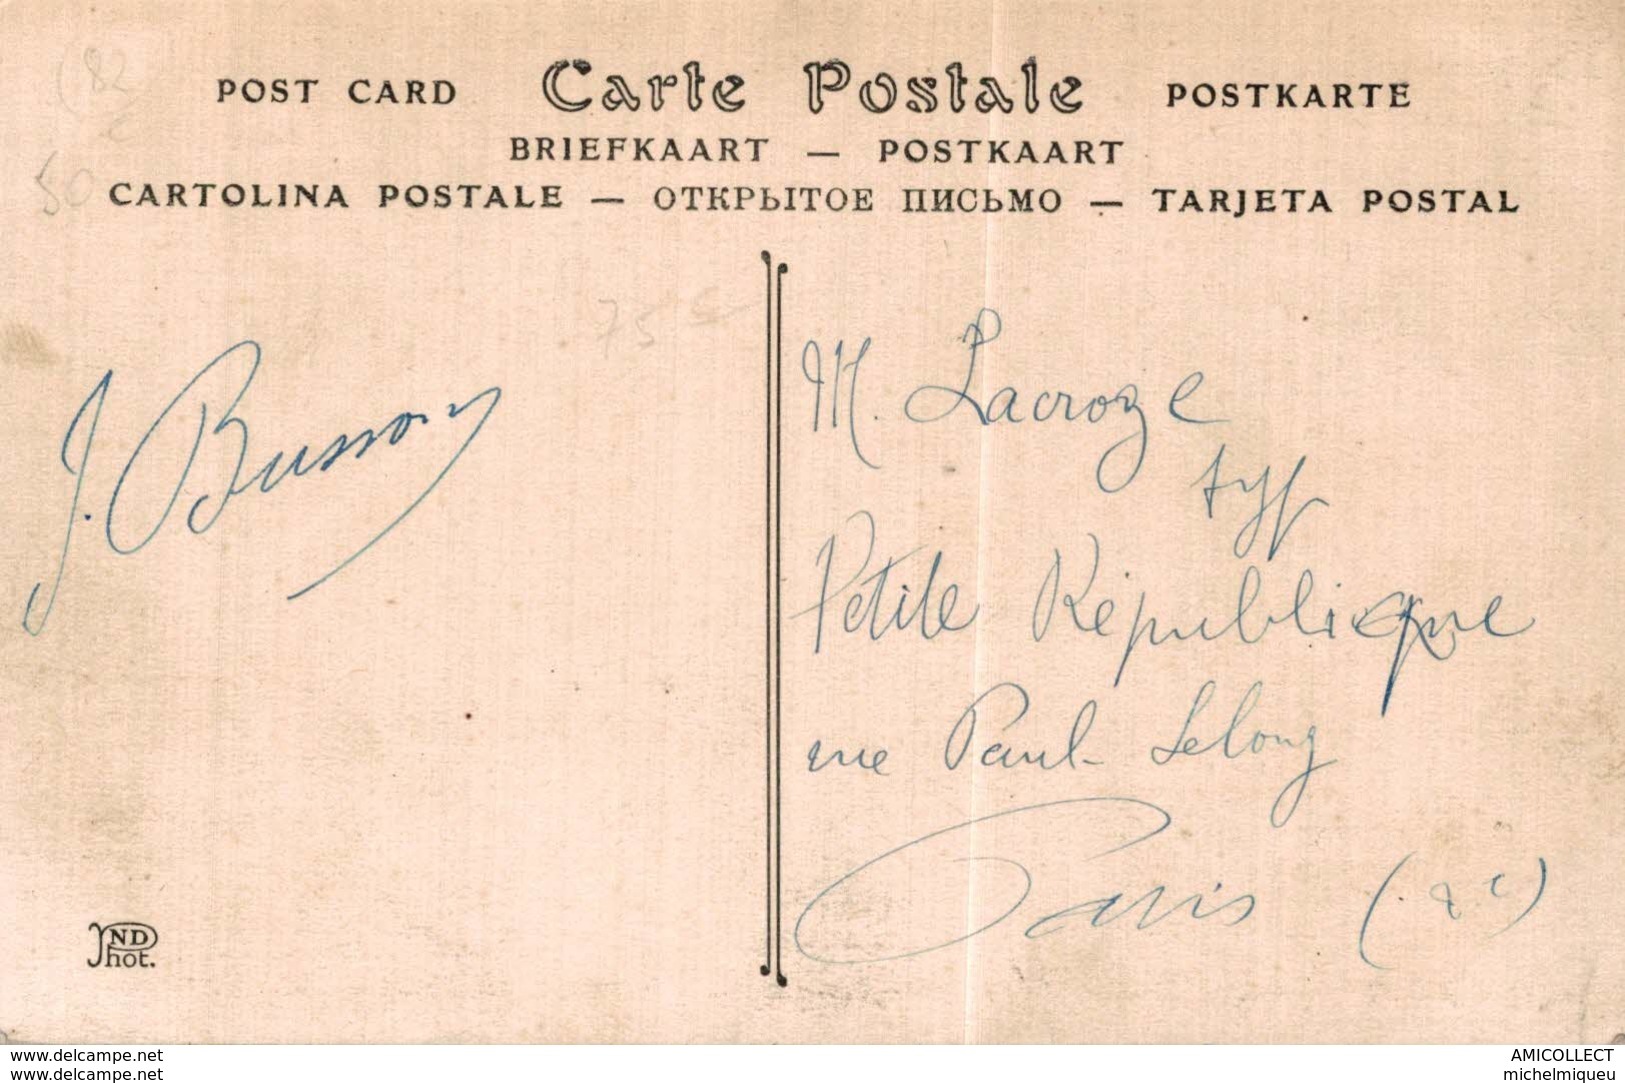 POST CARD Carte Postale POSTKARTE
BRIEFKAART — POSTKAART
CARTOLINA POSTALE — ОТКРЫТОЕ ПИСЬМО — TARJETA POSTAL
(82
50
75 €
J. Busson
M. Lacroze
typ
Petite République
rue Paul Lelong
Paris (2e)
ND
Phot.
www.delcampe.net AMICOLLECT
www.delcampe.net michelmiqueu